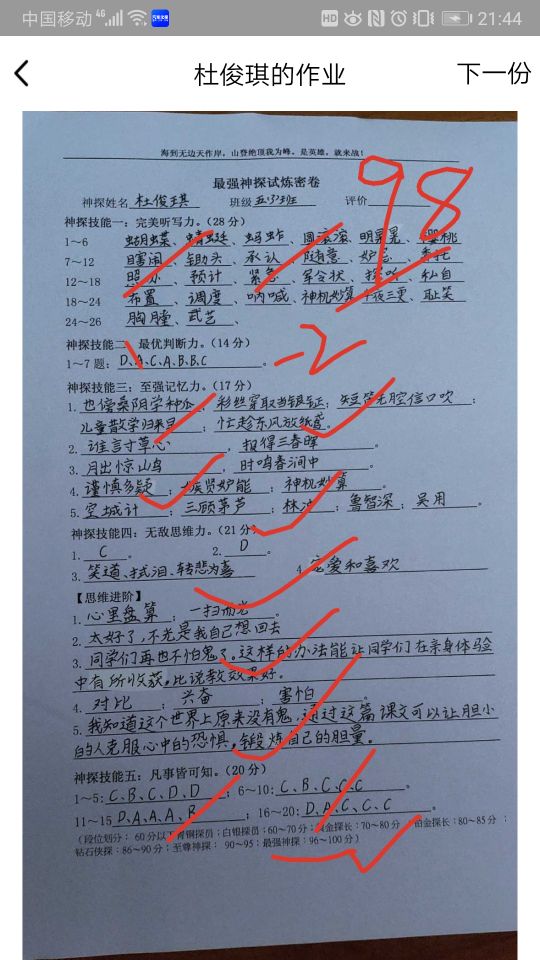 中国移动 4G HD 21:44
杜俊琪的作业 下一份
海到无边天作岸，山登绝顶我为峰。是英雄，就来战！
最强神探试炼密卷
神探姓名 杜俊琪 班级 五(3)班 评价
98
神探技能一：完美听写力。（28 分）
1～6 蝴蝶、蜻蜓、蚂蚱、圆滚滚、明晃晃、樱桃
7～12 瞎闹、锄头、承认、随意、妒忌、委托
12～18 照办、预计、紧急、军令状、探听、私自
18～24 布置、调度、呐喊、神机妙算、半夜三更、耻笑
24～26 胸膛、武艺、
神探技能二、最优判断力。（14 分）
1～7 题：D、A、C、A、B、B、C。 -2
神探技能三：至强记忆力。（17 分）
1. 也傍桑阴学种瓜；彩丝穿取当银钲；短笛无腔信口吹；
儿童散学归来早；忙趁东风放纸鸢。
2. 谁言寸草心，报得三春晖。
3. 月出惊山鸟，时鸣春涧中。
4. 谨慎多疑；嫉贤妒能；神机妙算。
5. 空城计；三顾茅庐；林冲；鲁智深；吴用。
神探技能四：无敌思维力。（21 分）
1. C。 2. D。
3. 笑道、拭泪、转悲为喜 4. 宠爱和喜欢
【思维进阶】
1. 心里盘算；一扫而光。
2. 太好了，不光是我自己想回去
3. 同学们再也不怕鬼了。这样的办法能让同学们在亲身体验
中有所收获，比说教效果好。
4. 对比；兴奋；害怕。
5. 我知道这个世界上原来没有鬼，通过这篇课文可以让胆小
的人克服心中的恐惧，锻炼自己的胆量。
神探技能五：凡事皆可知。（20 分）
1～5: C、B、C、D、D；6～10: C、B、C、C、C。
11～15 D、A、A、A、B；16～20: D、A、C、C、C。
（段位划分： 60 分以下青铜探员；白银探员：60～70 分；黄金探长：70～80 分；铂金探长：80～85 分；
钻石侠探：86～90 分；至尊神探： 90～95；最强神探：96～100 分）